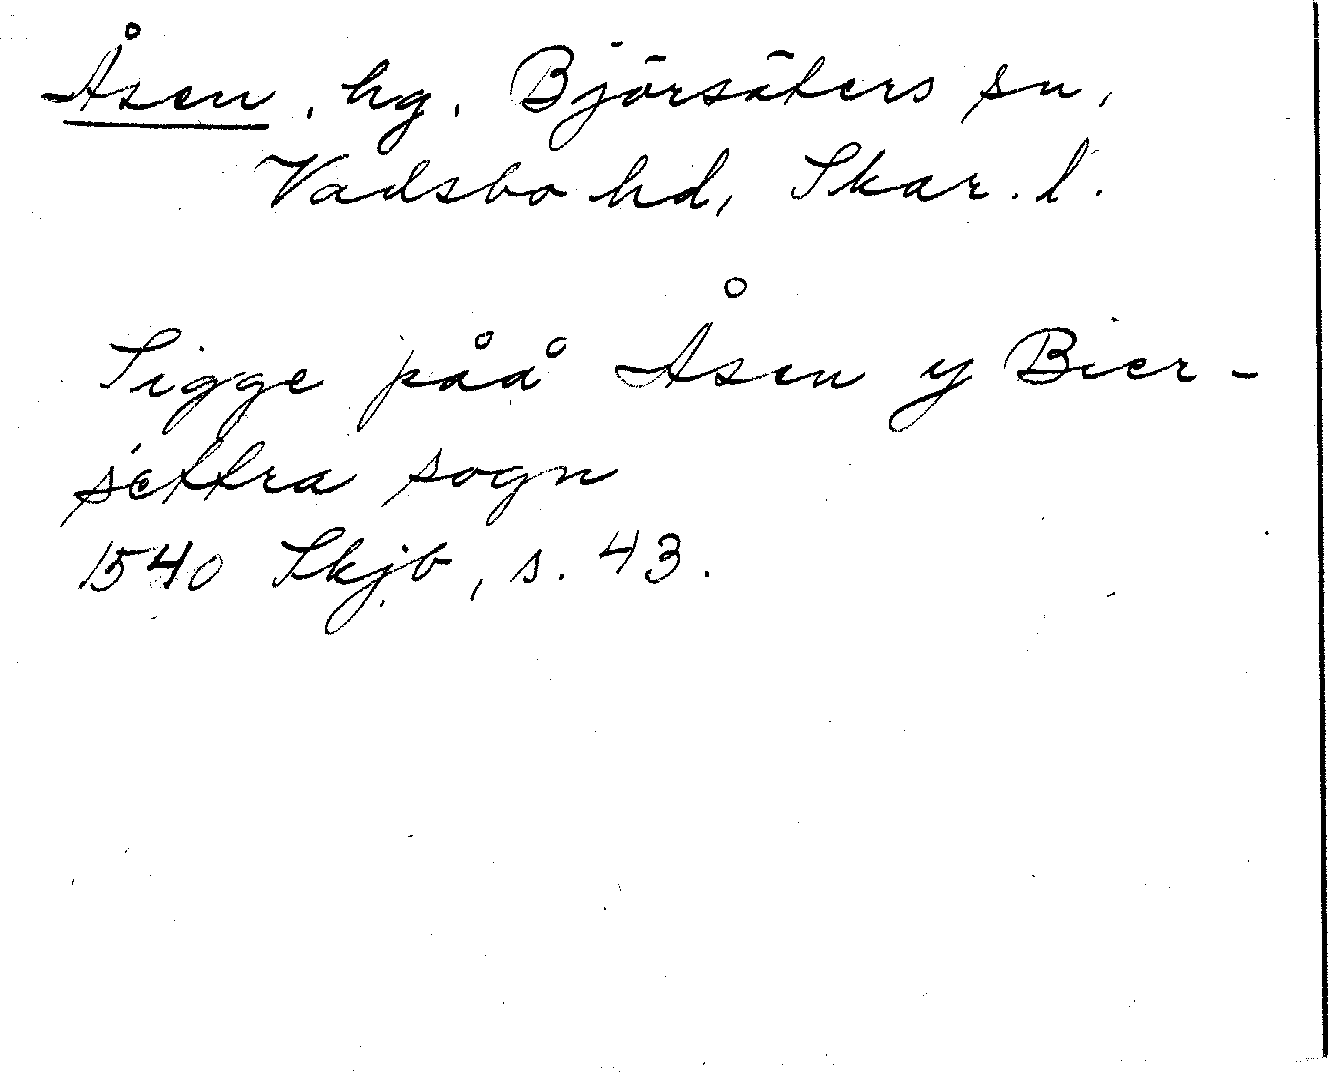 Åsen, hg. Björsäters sn,
Vadsbo hd, Skar. l.
Sigge påå Åsen y Bier-
settra sogn
1540 Skjb, s. 43.